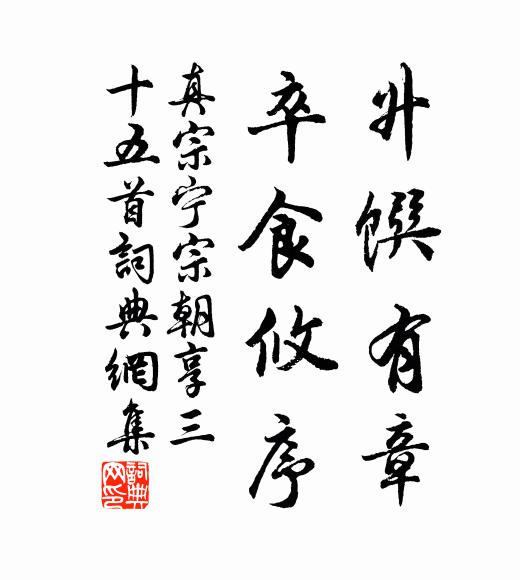 升馔有章
卒食攸序
真宗宁宗朝享三
十五首詞典網集
詞典网印